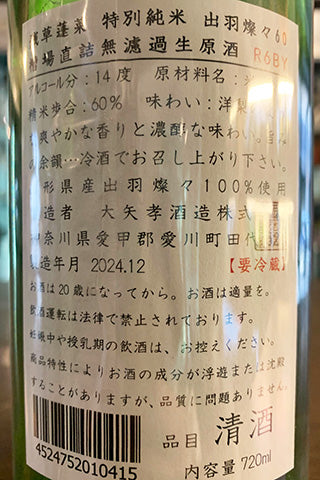 浅草蓬莱 特別純米 出羽燦々60
槽場直詰無濾過生原酒 R6BY
アルコール分:14度 原材料名:
精米歩合:60% 味わい:洋
爽やかな香りと濃醇な味わい。旨み
の余韻…冷酒でお召し上がり下さい。
形県産出羽燦々100%使用
造者 大矢孝酒造株式
奈川県愛甲郡愛川町田代
造年月 2024.12 【要冷蔵】
お酒は20歳になってから。お酒は適量を。
飲酒運転は法律で禁止されております。
妊娠中や授乳期の飲酒は、お控えください。
商品特性によりお酒の成分が浮遊または沈殿
することがありますが、品質に問題ありません。
4524752010415
品目 清酒
内容量 720ml